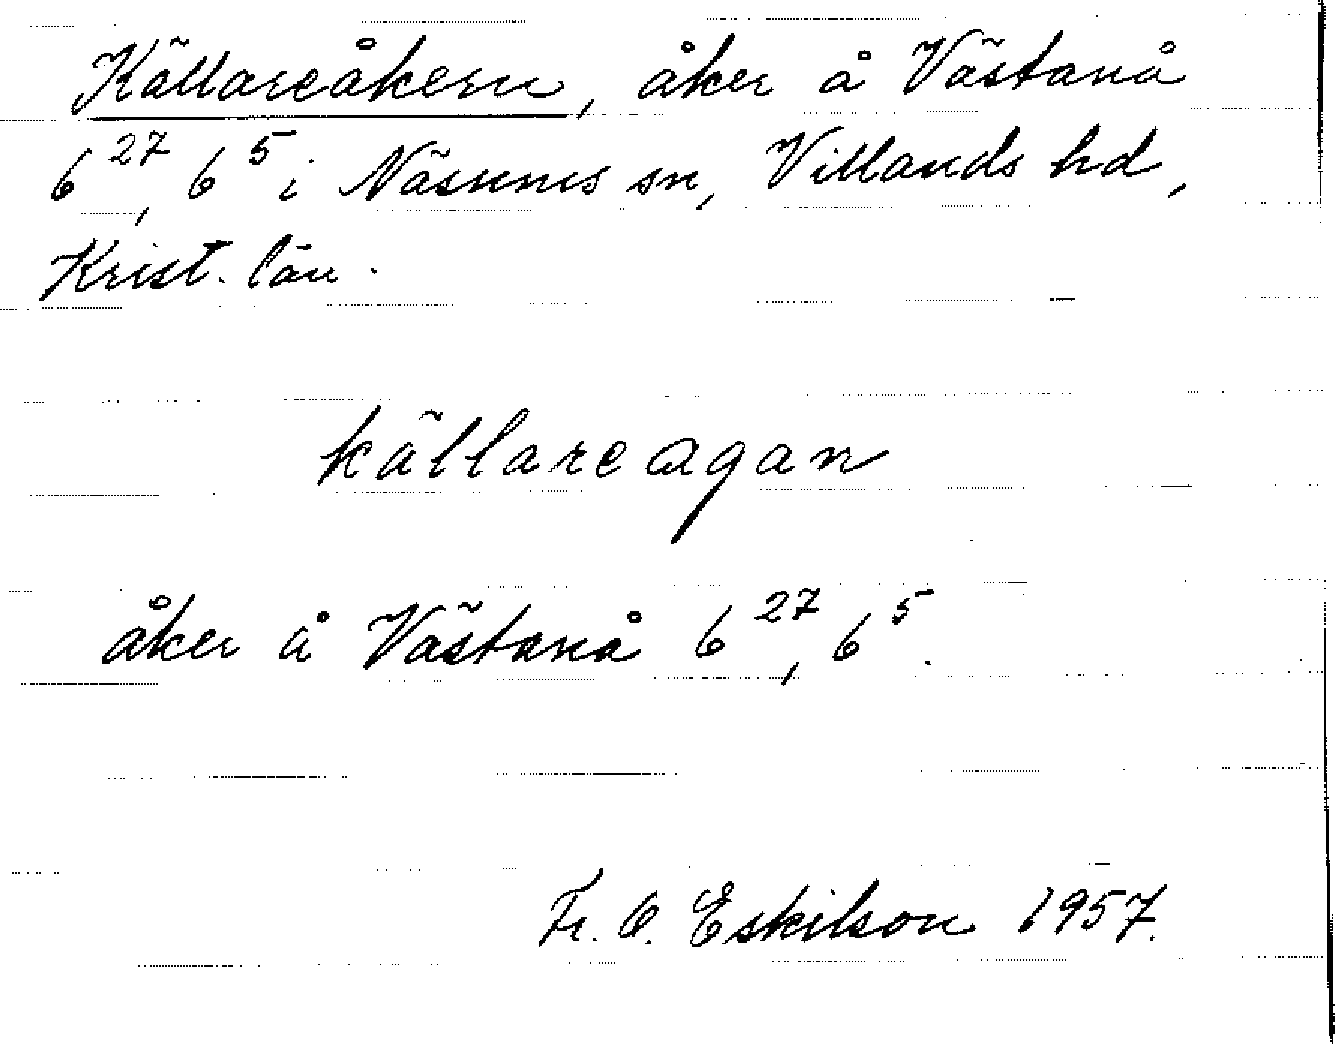 Källareåkern, åker å Västanå
6²⁷, 6⁵ i Näsums sn, Villands hd,
Krist. län.
källareagan
åker å Västanå 6²⁷, 6⁵.
Fr. O. Eskilson 1957.